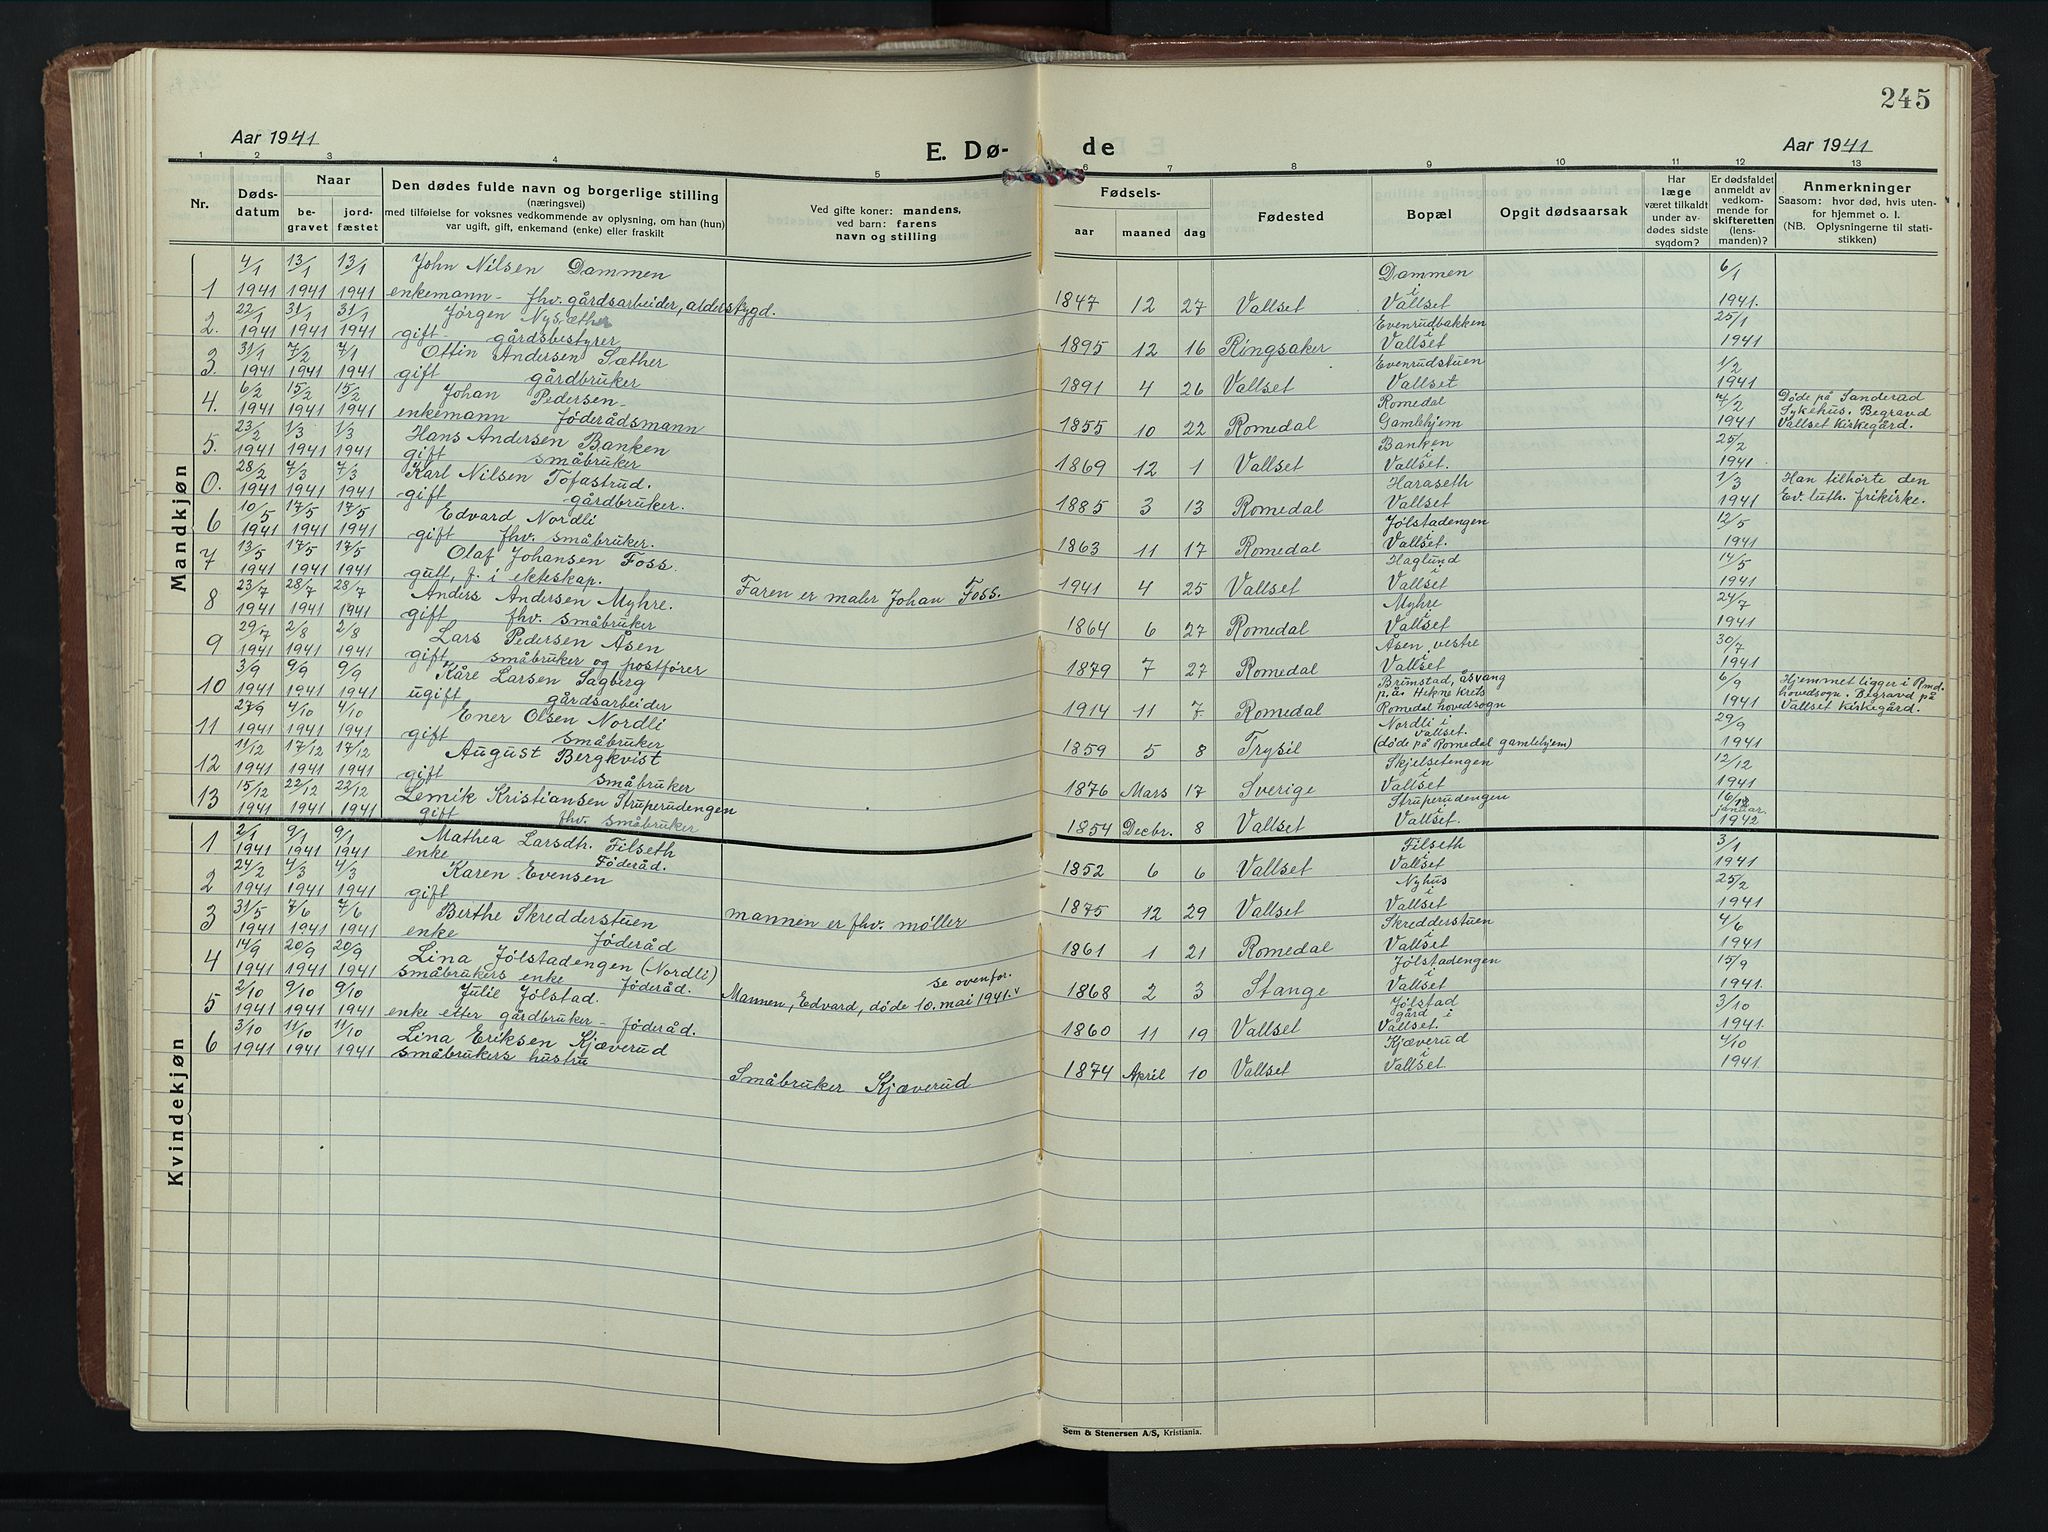 245
Aar 1941
E. Dø- de
Aar 1941
1 2 3 4 5 6 7 8 9 10 11 12 13
Nr.
Døds-
datum
Naar
be-
gravet
jord-
fæstet
Den dødes fulde navn og borgerlige stilling
(næringsvei)
med tilføielse for voksnes vedkommende av oplysning, om han (hun)
var ugift, gift, enkemand (enke) eller fraskilt
Ved gifte koner: mandens,
ved barn: farens
navn og stilling
Fødsels-
aar maaned dag
Fødested
Bopæl
Opgit dødsaarsak
Har
læge
været tilkaldt
under av-
dødes sidste
sygdom?
Er dødsfaldet
anmeldt av
vedkom-
mende for
skifteretten
(lens-
manden)?
Anmerkninger
Saasom: hvor død, hvis uten-
for hjemmet o. l.
(NB. Oplysningerne til stati-
stikken)
Mandkjøn
4/1 13/1 13/1 John Nilsen Dammen Dammen i 6/1
1 1941 1941 1941 enkemann - fhv. gårdsarbeider, alderstrygd. 1847 12 27 Vallset Vallset 1941.
22/1 31/1 31/1 Jørgen Nysæther Evenrudbakken i 25/1
2. 1941 1941 1941 gift - gårdsbestyrer 1895 12 16 Ringsaker Vallset 1941
31/1 7/2 7/1 Ottin Andersen Sæther Evenrudstuen 1/2
3. 1941 1941 1941 gift gårdbruker 1891 4 26 Vallset Vallset 1941
6/2 15/2 15/2 Johan Pedersen - Romedal 7/2 Døde på Sanderud
4. 1941 1941 1941 enkemann föderådsmann 1855 10 22 Romedal Gamlehjem 1941 Sykehus. Begravd
Vallset kirkegård.
23/2 1/3 1/3 Hans Andersen Banken Banken i 25/2
5. 1941 1941 1941 gift småbruker 1869 12 1 Vallset Vallset. 1941
28/2 7/3 7/3 Karl Nilsen Tofastrud. Haraseth 1/3 Han tilhørte den
0. 1941 1941 1941 gift gårdbruker. 1885 3 13 Romedal Vallset 1941 Ev. luth. frikirke.
10/5 17/5 17/5 Edvard Nordli Jølstadengen i 12/5
6 1941 1941 1941 gift fhv. småbruker. 1863 11 17 Romedal Vallset. 1941
13/5 17/5 17/5 Olaf Johansen Foss Haglund i 14/5
7 1941 1941 1941 gutt, f. i ekteskap. Faren er maler Johan Foss. 1941 4 25 Vallset Vallset 1941
23/7 28/7 28/7 Anders Andersen Myhre. Myhre i 24/7
8 1941 1941 1941 gift fhv. småbruker 1864 6 27 Romedal Vallset 1941
29/7 2/8 2/8 Lars Pedersen Åsen Åsen, vestre 30/7
9 1941 1941 1941 gift, småbruker og postfører 1879 7 27 Romedal Vallset 1941
3/9 9/9 9/9 Kåre Larsen Sagberg Brimstad, åsvang 6/9 Hjemmet ligger i Rmd.
10 1941 1941 1941 ugift gårdsarbeider 1914 11 7 Romedal p.å. Hekne Krets 1941 hovedsogn. Begravd på
Romedal hovedsogn Vallset kirkegård.
27/9 4/10 4/10 Ener Olsen Nordli Nordli i Vallset. 29/9
11 1941 1941 1941 gift småbruker 1859 5 8 Trysil (døde på Romedal gamlehjem) 1941
11/12 17/12 17/12 August Bergkvist Skjelsetengen i 12/12
12 1941 1941 1941 gift småbruker 1876 Mars 17 Sverige Vallset 1941
15/12 22/12 22/12 Lemik Kristiansen Struperudengen Struperudengen i 16/12 januar
13 1941 1941 1941 gift fhv. småbruker 1854 Decbr. 8 Vallset Vallset. 1942
Kvindekjøn
2/1 9/1 9/1 Mathea Larsdtr. Filseth Filseth i 3/1
1 1941 1941 1941 enke Föderåd. 1852 6 6 Vallset Vallset 1941
24/2 4/3 4/3 Karen Evensen Nyhus i 25/2
2 1941 1941 1941 gift mannen er fhv. møller 1875 12 29 Vallset Vallset 1941
31/5 7/6 7/6 Berthe Skredderstuen Skredderstuen i 4/6
3 1941 1941 1941 enke föderåd 1861 1 21 Romedal Vallset 1941
14/9 20/9 20/9 Lina Jølstadengen (Nordli) se ovenfor. Jølstadengen i 15/9
4 1941 1941 1941 småbrukers enke föderåd. Mannen, Edvard, døde 10. mai 1941. 1868 2 3 Stange Vallset 1941.
2/10 9/10 9/10 Julie Jølstad. Jølstad gård i 3/10
5 1941 1941 1941 enke etter gårdbruker - föderåd. 1860 11 19 Vallset Vallset. 1941.
3/10 11/10 11/10 Lina Eriksen Kjæverud Kjæverud i 4/10
6 1941 1941 1941 småbrukers hustru Småbruker Kjæverud 1874 April 10 Vallset Vallset. 1941
Sem & Stenersen A/S, Kristiania.